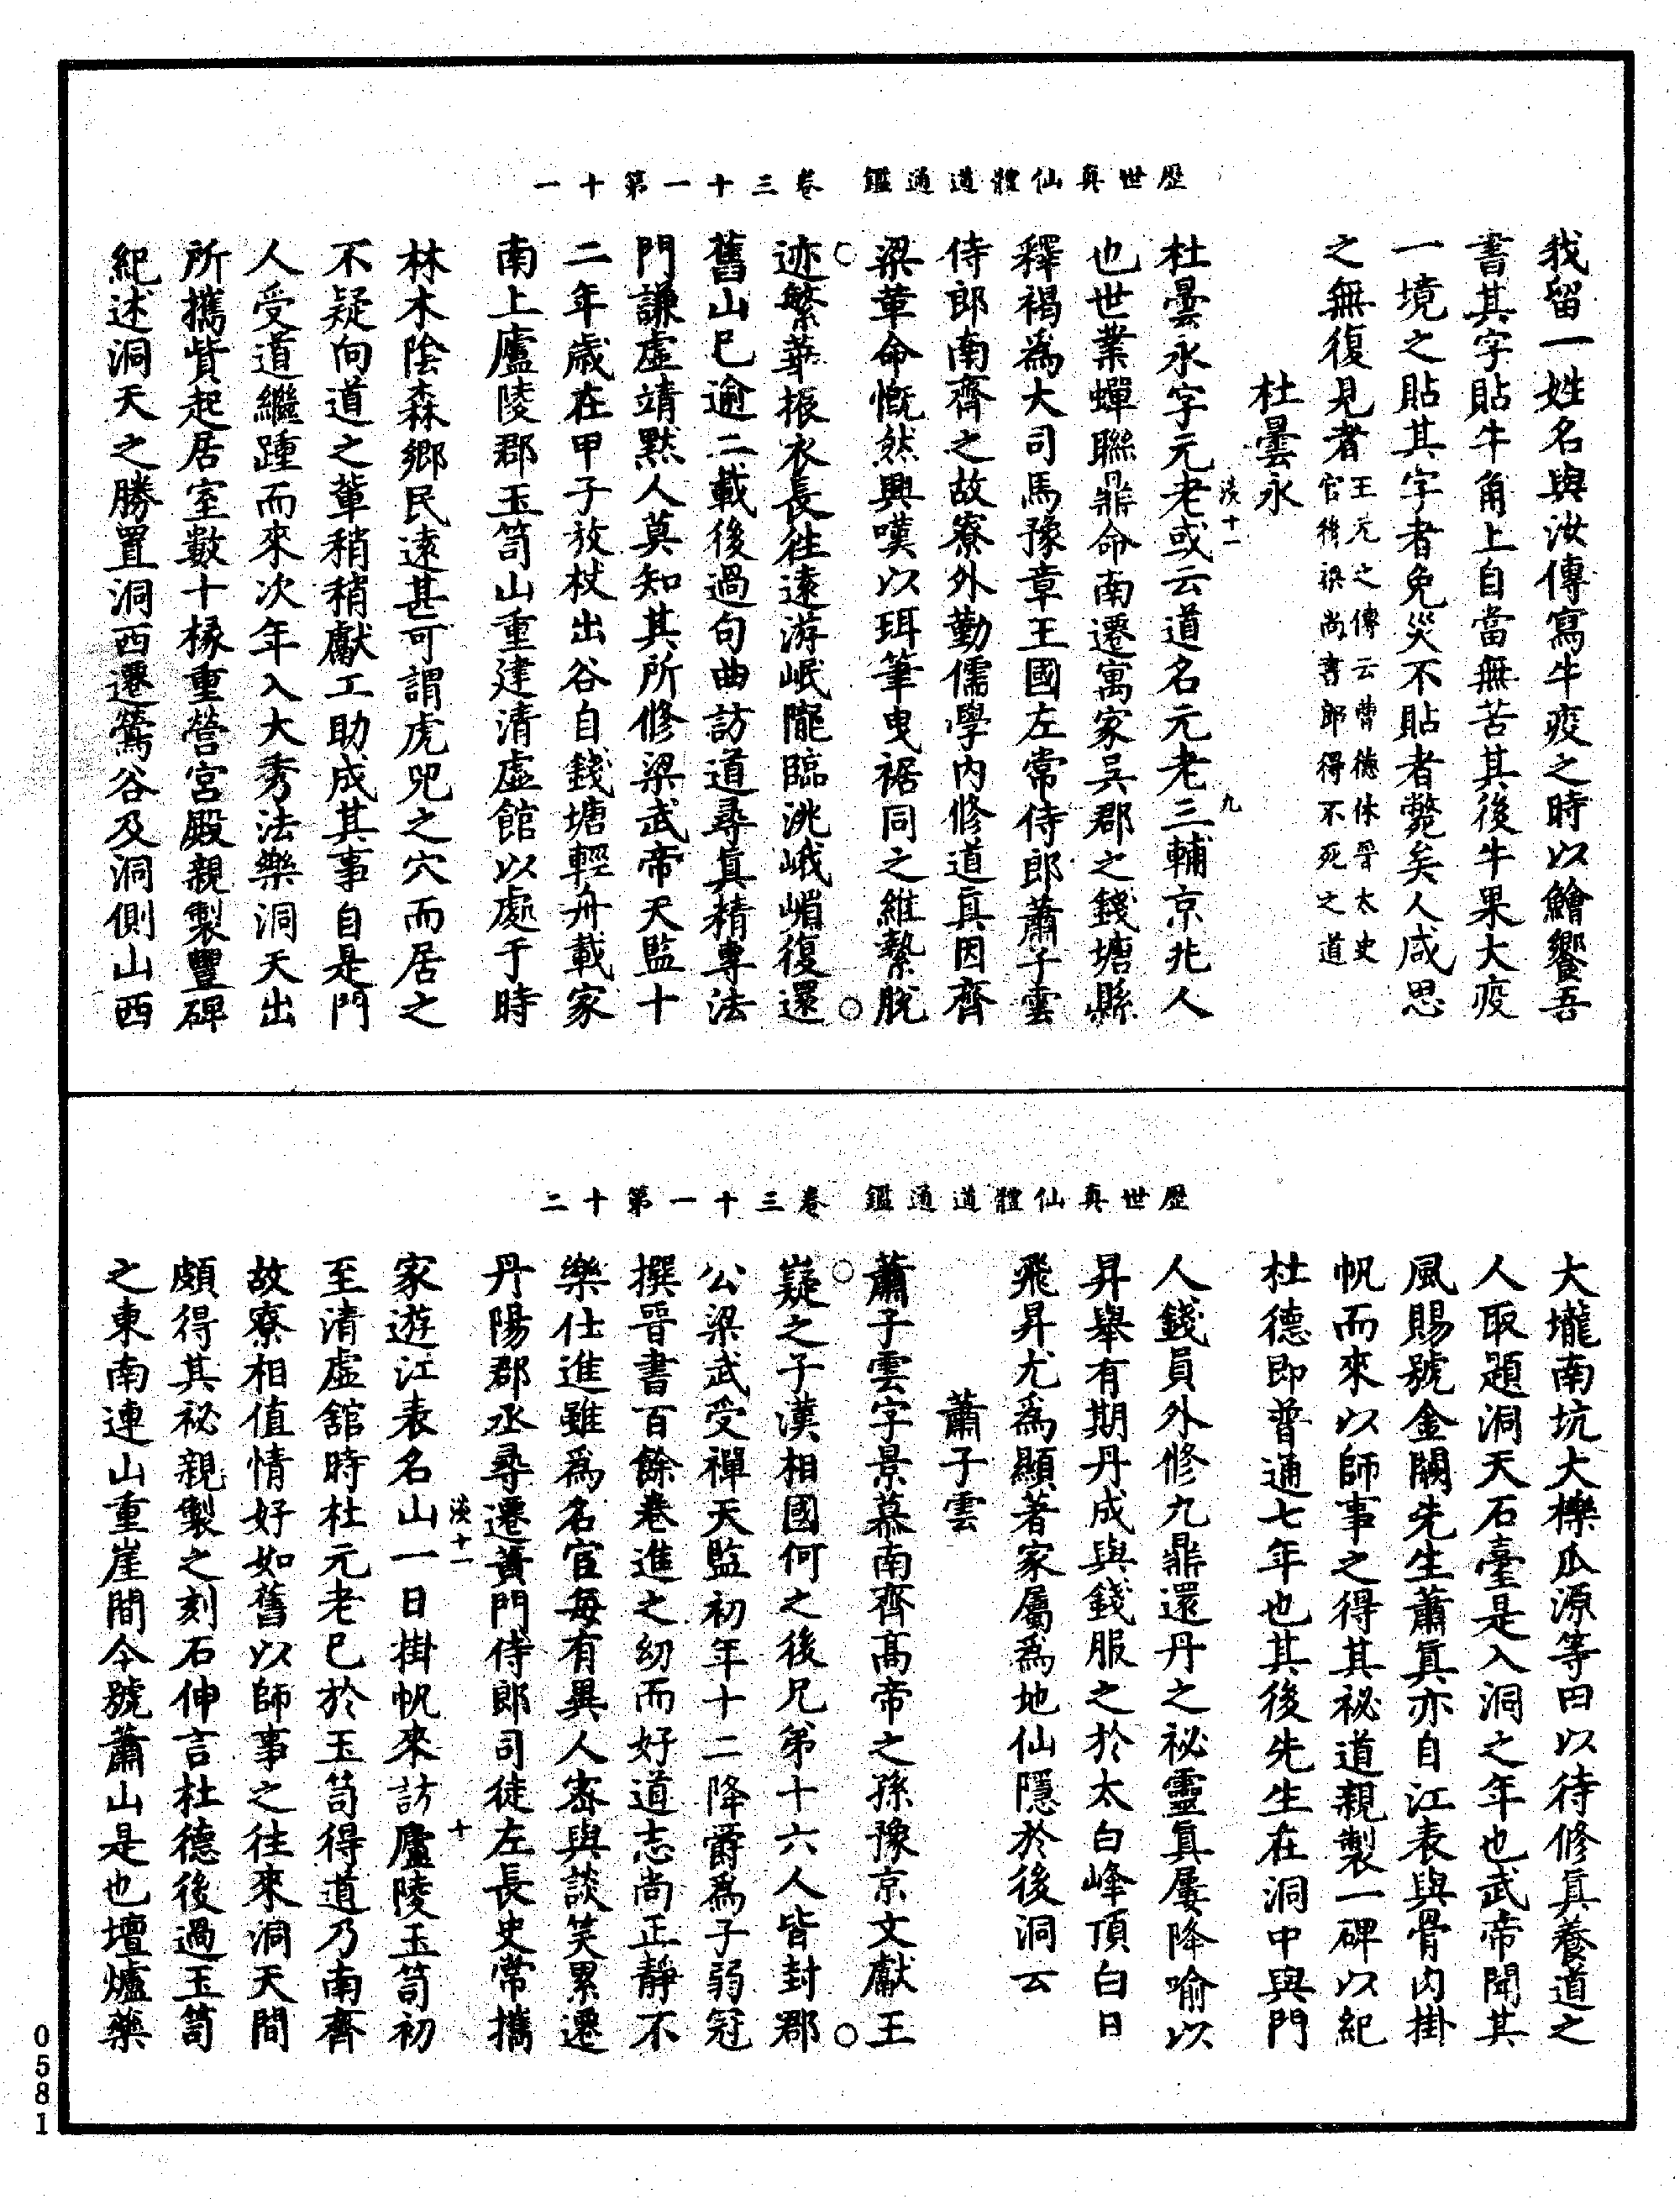 歷世真仙體道通鑑　卷三十一第十一
我留一姓名與汝傳寫牛疫之時以鱠饗吾
書其字貼牛角上自當無苦其後牛果大疫
一境之貼其字者免災不貼者斃矣人咸思
之無復見者王元之傳云曹德休晉太史官後梁尚書郎得不死之道
杜曇永
淡十一　九
杜曇永字元老或云道名元老三輔京兆人
也世業蟬聯鼎命南遷寓家吳郡之錢塘縣
釋褐為大司馬豫章王國左常侍郎蕭子雲
侍郎南齊之故寮外勤儒學內修道真因齊
梁革命慨然興嘆以珥筆曳裾同之維縶脫
迹繁華振衣長往遠游岷隴臨洮峨嵋復還
舊山已逾二載後過句曲訪道尋真精專法
門謙虛靖默人莫知其所修梁武帝天監十
二年歲在甲子放杖出谷自錢塘輕舟載家
南上廬陵郡玉笥山重建清虛館以處于時
林木陰森鄉民遠甚可謂虎兕之穴而居之
不疑向道之輩稍稍獻工助成其事自是門
人受道繼踵而來次年入大秀法樂洞天出
所攜貲起居室數十椽重營宮殿親製豐碑
紀述洞天之勝置洞西遷鶯谷及洞側山西
歷世真仙體道通鑑　卷三十一第十二
大壠南坑大櫟瓜源等田以待修真養道之
人取題洞天石臺是入洞之年也武帝聞其
風賜號金闕先生蕭真亦自江表與骨肉掛
帆而來以師事之得其祕道親製一碑以紀
杜德即普通七年也其後先生在洞中與門
人錢員外修九鼎還丹之祕靈真屢降喻以
昇舉有期丹成與錢服之於太白峰頂白日
飛昇尤為顯著家屬為地仙隱於後洞云
蕭子雲
蕭子雲字景慕南齊高帝之孫豫京文獻王
嶷之子漢相國何之後兄弟十六人皆封郡
公梁武受禪天監初年十二降爵為子弱冠
撰晉書百餘卷進之幼而好道志尚正靜不
樂仕進雖為名宦每有異人密與談笑累遷
丹陽郡丞尋遷黃門侍郎司徒左長史常攜
淡十一　十
家遊江表名山一日掛帆來訪廬陵玉笥初
至清虛舘時杜元老已於玉笥得道乃南齊
故寮相值情好如舊以師事之往來洞天間
頗得其祕親製之刻石伸言杜德後過玉笥
之東南連山重崖間今號蕭山是也壇爐藥
0581